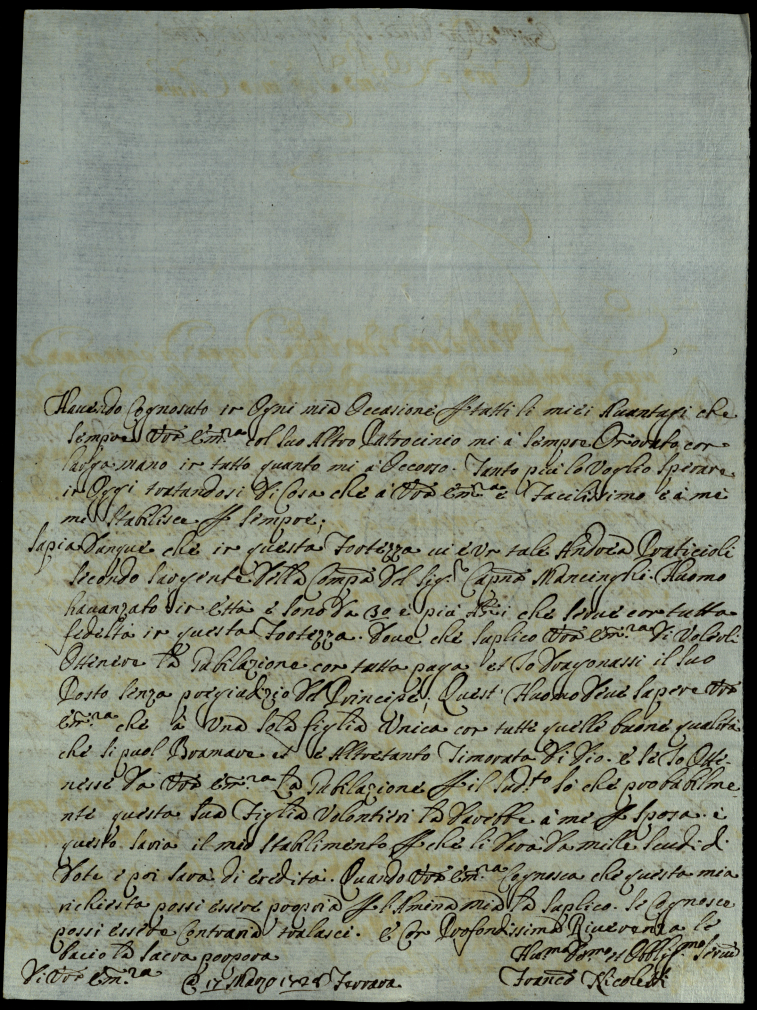 Havendo Cognosuto in Ogni mia Occasione p tutti li miei Avantagi che
sempre Vra Em.ra col suo Altro Patrocinio mi à sempre Provato con
larga mano in tutto quanto mi à Occorso. Tanto più lo Voglio sperare
in Oggi tratandosi di Cosa che à Vra Em.ra è Facilissimo è à me
mi Stabilisce p sempre;
Sapia Dunque che in questa Fortezza vi è Un tale Andrea Praticioli
secondo Sargente della Comp.a del Sig.r Cap.no Mancinghi. Huomo
havanzato in Età è sono da 30 è più Anni che serve con tutta
fedeltà in questa Fortezza. Dove che suplico Vra Em.ra di Volerli
Ottenere la Jubilazione con tutta paga et Io Dragonassi il suo
Posto senza pregiudizio del Principe; Quest' Huomo deve sapere Vra
Em.ra che à Una sola figlia Unica con tutte quelle buone qualità
che si puol Bramare et è Altretanto Timorata di Dio. è se Io Otte-
nesse da Vra Em.ra la Jubilazione p il sud.to sò che probabilme
nte questa sua Figlia Volontieri la darebbe à me p Sposa. è
questo saria il mio Stabilimento p che li darà da mille scudi di
dote è poi sarà di eredità. Quando Vra Em.ra Cognosca che questa mia
richiesta possi essere propria p l'Anima mia la suplico. se Cognosce
possi essere Contraria tralasci. è Con Profondissima Riverenza le
bacio la sacra porpora
Hu.ma Dev.mo et Obblig.mo Serv.e
Di Vra Em.ra @ 17 Marzo Ferrara Franc.o Nicoletti